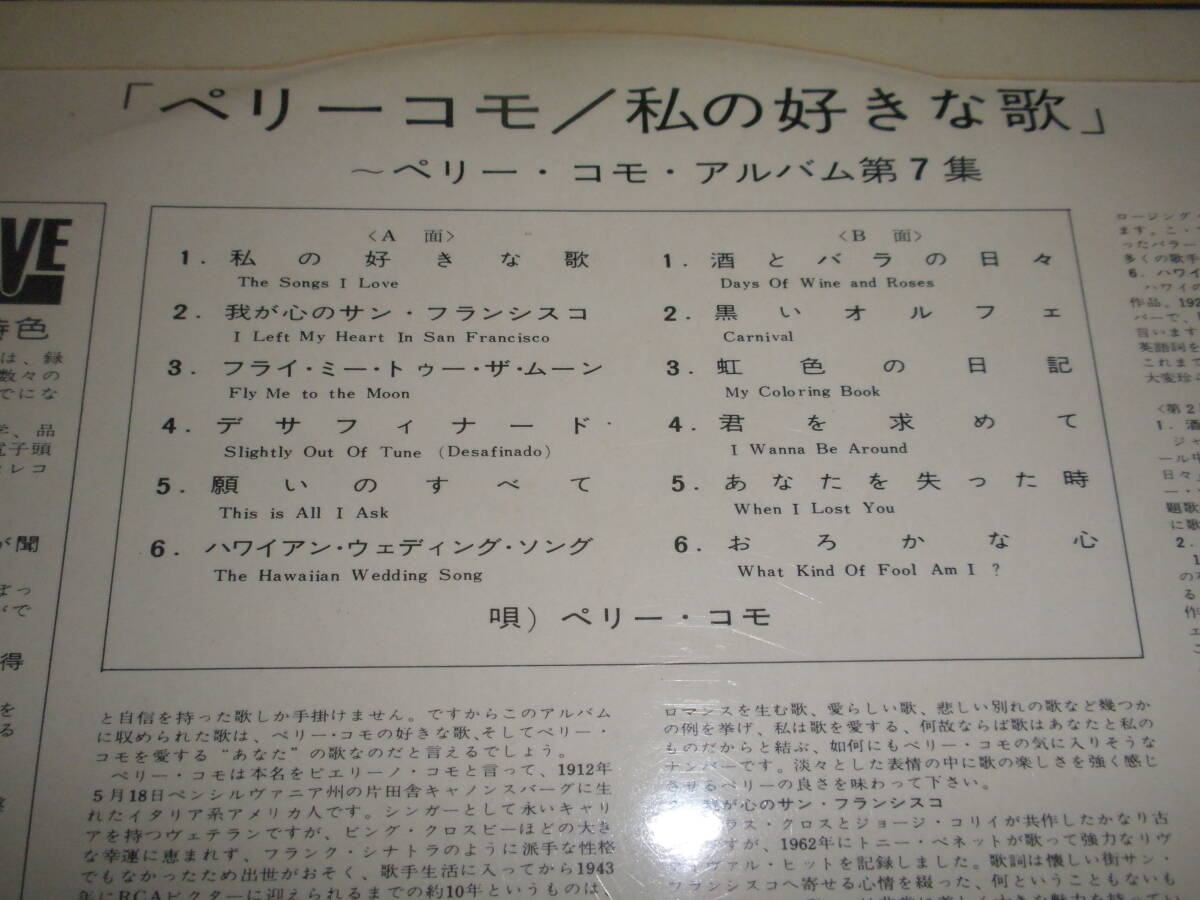 「ペリーコモ／私の好きな歌」
～ペリー・コモ・アルバム第7集
〈A 面〉
1. 私の好きな歌
The Songs I Love
2. 我が心のサン・フランシスコ
I Left My Heart In San Francisco
3. フライ・ミー・トゥー・ザ・ムーン
Fly Me to the Moon
4. デサフィナード
Slightly Out Of Tune (Desafinado)
5. 願いのすべて
This is All I Ask
6. ハワイアン・ウェディング・ソング
The Hawaiian Wedding Song
〈B 面〉
1. 酒とバラの日々
Days Of Wine and Roses
2. 黒いオルフェ
Carnival
3. 虹色の日記
My Coloring Book
4. 君を求めて
I Wanna Be Around
5. あなたを失った時
When I Lost You
6. おろかな心
What Kind Of Fool Am I ?
唄) ペリー・コモ
VE
特色
は、録
数々の
でにな
学、品
電子頭
レコ
が聞
ぼっ
がで
得
を
る
と自信を持った歌しか手掛けません。ですからこのアルバム
に収められた歌は、ペリー・コモの好きな歌、そしてペリー・
コモを愛する“あなた”の歌なのだと言えるでしょう。
ペリー・コモは本名をピエリーノ・コモと言って、1912年
5月18日ペンシルヴァニア州の片田舎キャノンスバーグに生
れたイタリア系アメリカ人です。シンガーとして永いキャリ
アを持つヴェテランですが、ビング・クロスビーほどの大き
な幸運に恵まれず、フランク・シナトラのように派手な性格
でもなかったため出世がおそく、歌手生活に入ってから1943
年にRCAビクターに迎えられるまでの約10年というものは、
ロマンスを生む歌、愛らしい歌、悲しい別れの歌など幾つか
の例を挙げ、私は歌を愛する、何故ならば歌はあなたと私の
ものだからと結ぶ、如何にもペリー・コモの気に入りそうな
ナンバーです。淡々とした表情の中に歌の楽しさを強く感じ
させるペリーの良さを味わって下さい。
我が心のサン・フランシスコ
ラス・クロスとジョージ・コリイが共作したかなり古
すが、1962年にトニー・ベネットが歌って強力なリヴ
ァイヴァル・ヒットを記録しました。歌詞は懐しい街サン・
フランシスコへ寄せる心情を綴った、何ということもないも
ロージング
ます。こ・
ったバラー
多くの歌手
6. ハワイ
ハワイの
作品。192
バーで、
言います
英語詞を
これまで
大変珍ら
〈第2
1. 酒
ジャ
ール中
日々」
題歌
に歌
2.
の
る
作
ェ
こ